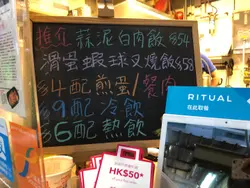 蒜泥白肉飯 $54
滑蛋蝦球叉燒飯 $58
$4配煎蛋/餐肉
$9配冷飲
$6配熱飲
RITUAL
在此取餐
HK$50*